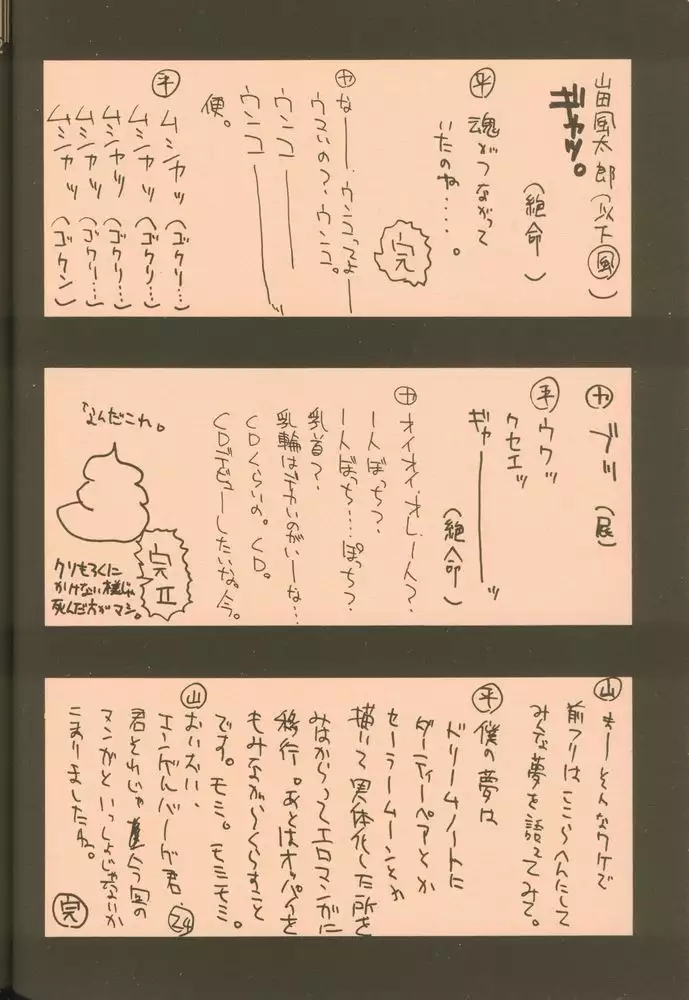 山田風太郎(以下風)
ギャッ。
(絶命)
平 魂がつながって
いたのね・・・・。
完
カ なー、ウンコってよー
ウマいの?、ウンコ。
ウンコ――
ウンコ――ッ
便。
平 ムシャッ(ゴクリ…)
ムシャッ(ゴクリ…)
ムシャッ(ゴクリ…)
ムシャッ(ゴクリ…)
ムシャッ(ゴクン)
カ ブッ(屁)
平 ウウッ
クセエッ
ギャ――――ッ
(絶命)
カ オイオイ、オレ一人?、
一人ぼっち?、
一人ぼっち…ぽっち?、
乳首?、
乳輪はデカいのがいーな…
CDくらいの。CD。
CDデビューしたいな。今。
なんだこれ。
完II
クリもろくに
かけない様じゃ
死んだ方がマシ。
山 まーそんなワケで
前フリはここらへんにして
みんな夢を語ってみて。
平 僕の夢は
ドリームノートに
ダーティーペアとか
セーラームーンとか
描いて実体化した所を
みはからってエロマンガに
移行。あとはオッパイを
もみながらくらすこと
です。モミ。モミモミ。
山 おいおい、
エンゲルバーグ君、24
君それじゃ今回の
マンガといっしょじゃないか
こまりましたね。
完